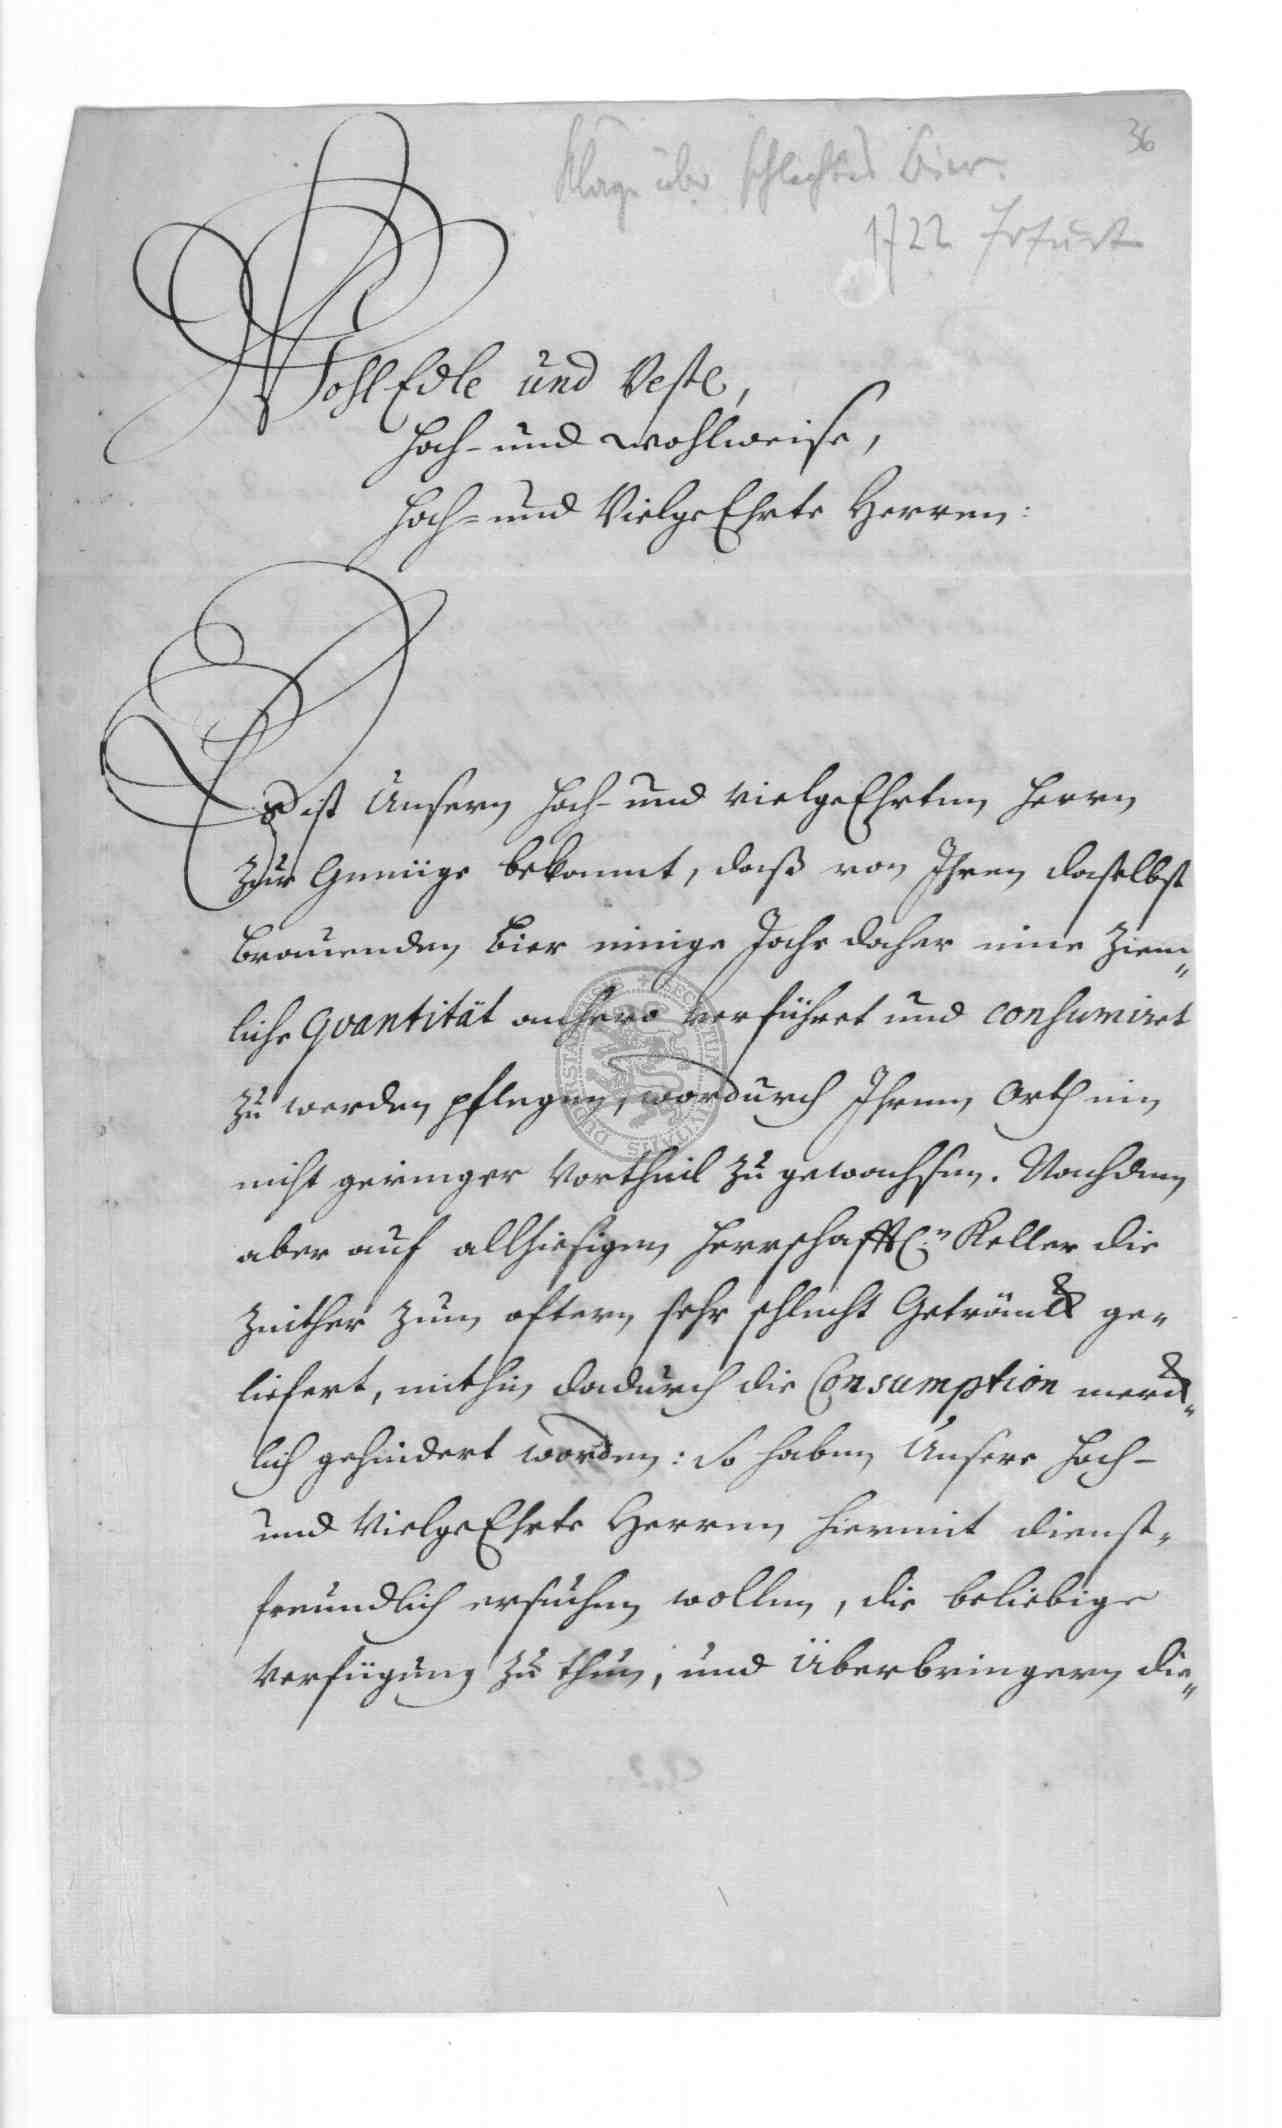 36
Klage über schlechtes Bier.
1722 Erfurt
WohlEdle und Veste,
Hoch- und Wohlweise,
Hoch- und VielgeEhrte Herren:
Es ist Unsern Hoch- und VielgeEhrten Herrn
zur Genüge bekannt, daß von Ihren daselbst
brauenden Bier einige Jahr daher eine ziem-
liche Qvantität anhero verführet und consumiret
zu werden pflegen, wordurch Ihrem Orth ein
nicht geringer Vortheil zu gewachsen. Nachdem
aber auf allhiesigen Herrschafftl:n Keller die
zeither zum oftern sehr schlecht Getränck ge-
liefert, mithin dadurch die Consumption merck-
lich gehindert worden: So haben Unsere Hoch-
und VielgeEhrte Herren hiermit dienst-
freundlich ersuchen wollen, die beliebige
Verfügung zu thun, und Überbringern die-